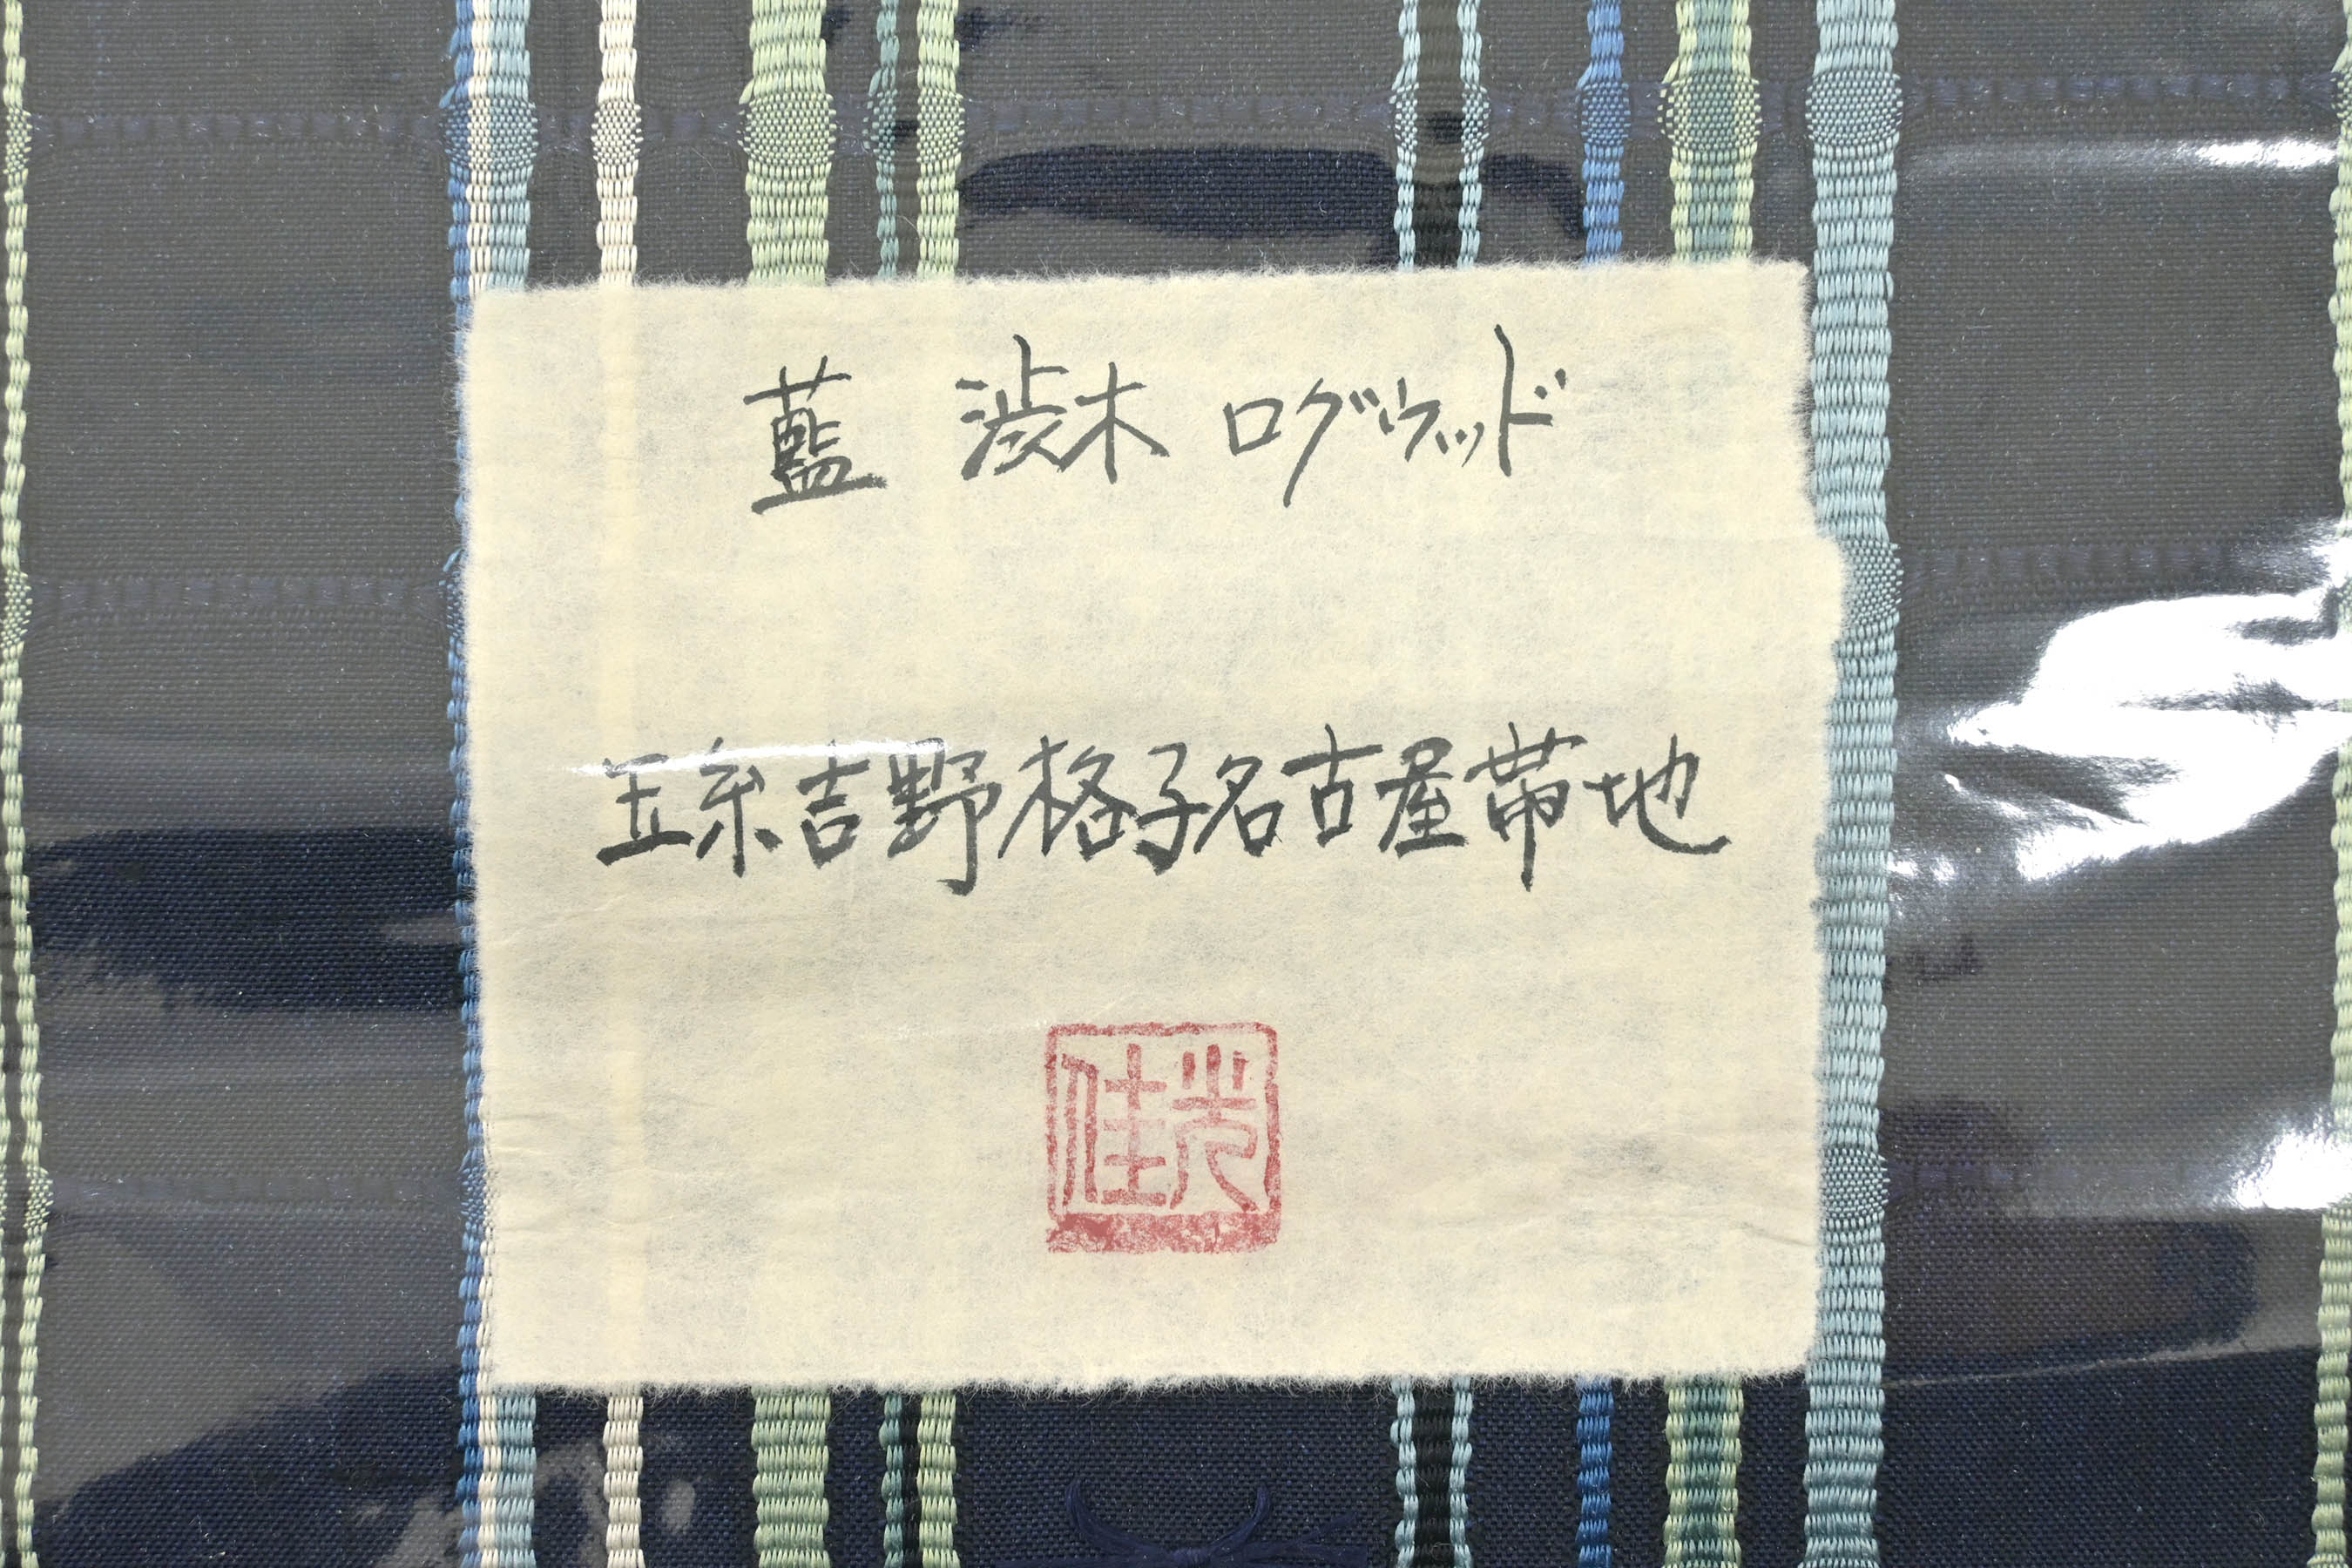 藍 渋木 ログウッド
玉糸吉野格子名古屋帯地
光佳